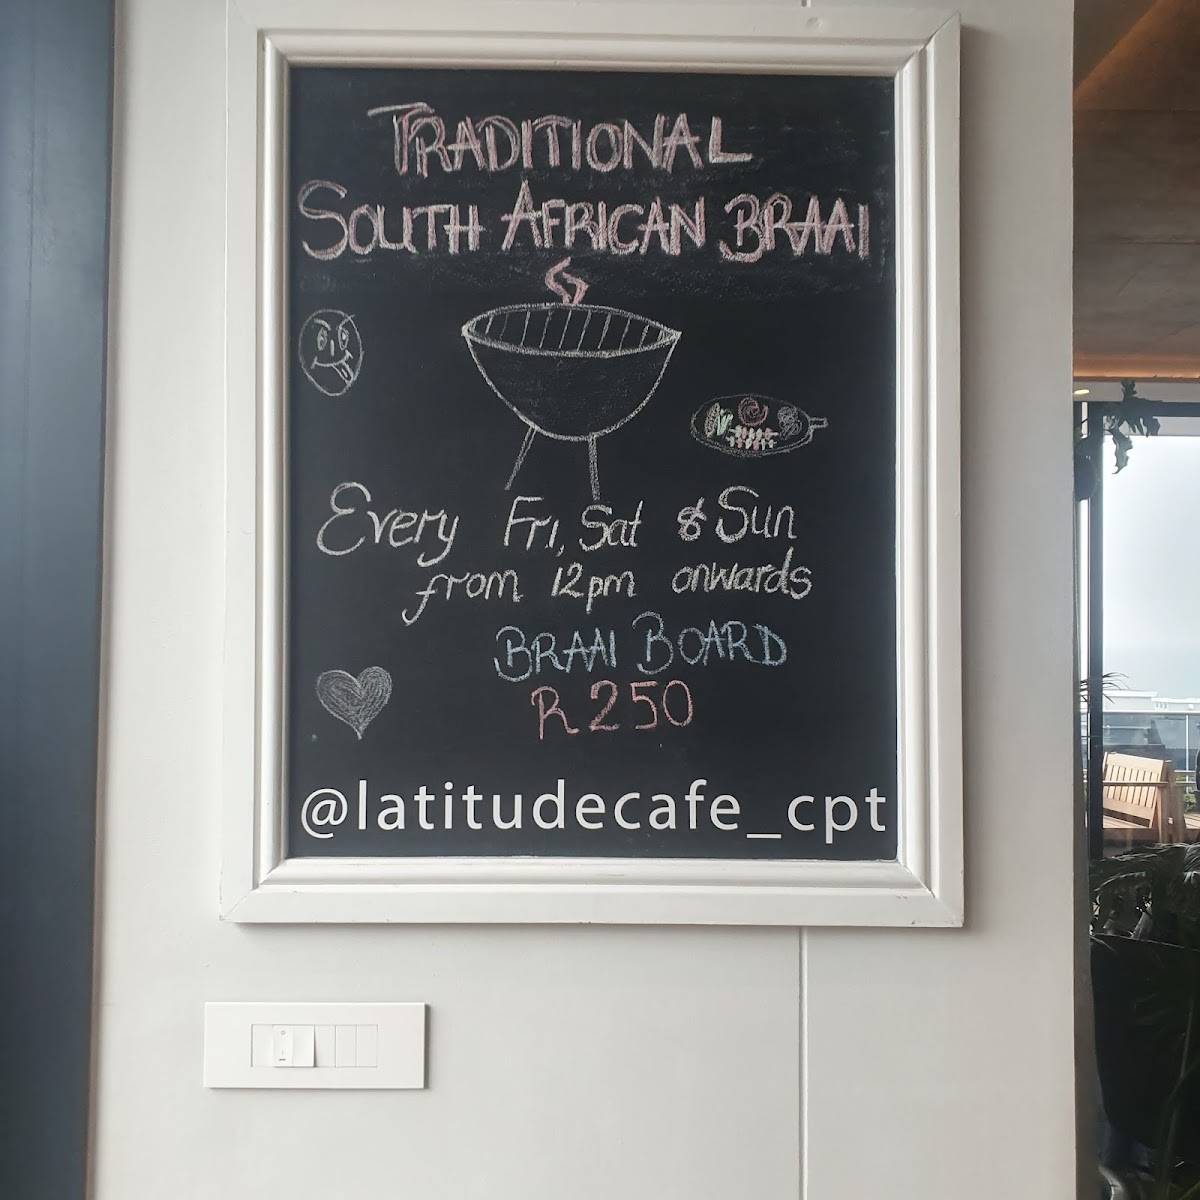 TRADITIONAL
SOUTH AFRICAN BRAAI
Every Fri, Sat & Sun
from 12pm onwards
BRAAI BOARD
R250
@latitudecafe_cpt